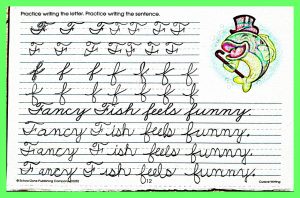 Practice writing the letter. Practice writing the sentence.
F F F F F F F
F F F F F F F
f f f f f f f
f f f f f f f
Fancy Fish feels funny.
Fancy Fish feels funny.
Fancy Fish feels funny.
Fancy Fish feels funny.
12
Cursive Writing